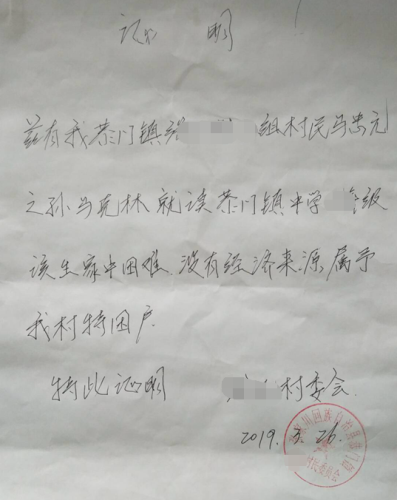 证明
兹有我茶门镇 组村民马志元
之孙马克林就读茶门镇中学 级
该生家中困难没有经济来源属于
我村特困户
特此证明 村委会
2019.3.26